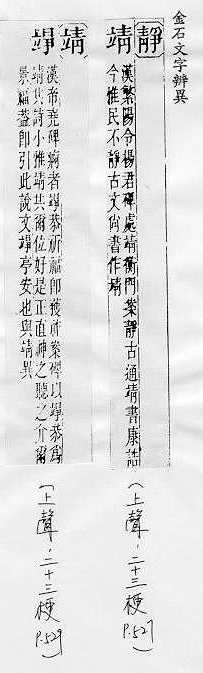 金石文字辨異
靜 靖
漢繁陽令楊君碑處靖衡門案靜古通靖書康誥
今惟民不靜古文尚書作靖
靖 竫
漢帝堯碑竫恭祈福即獲案碑以竫恭為
靖共詩小雅靖共爾位好是正直神之聽之介爾
景福蓋即引此說文竫亭安也與靖異
(上聲,二十三梗 P.527)
(上聲,二十三梗 P.529)